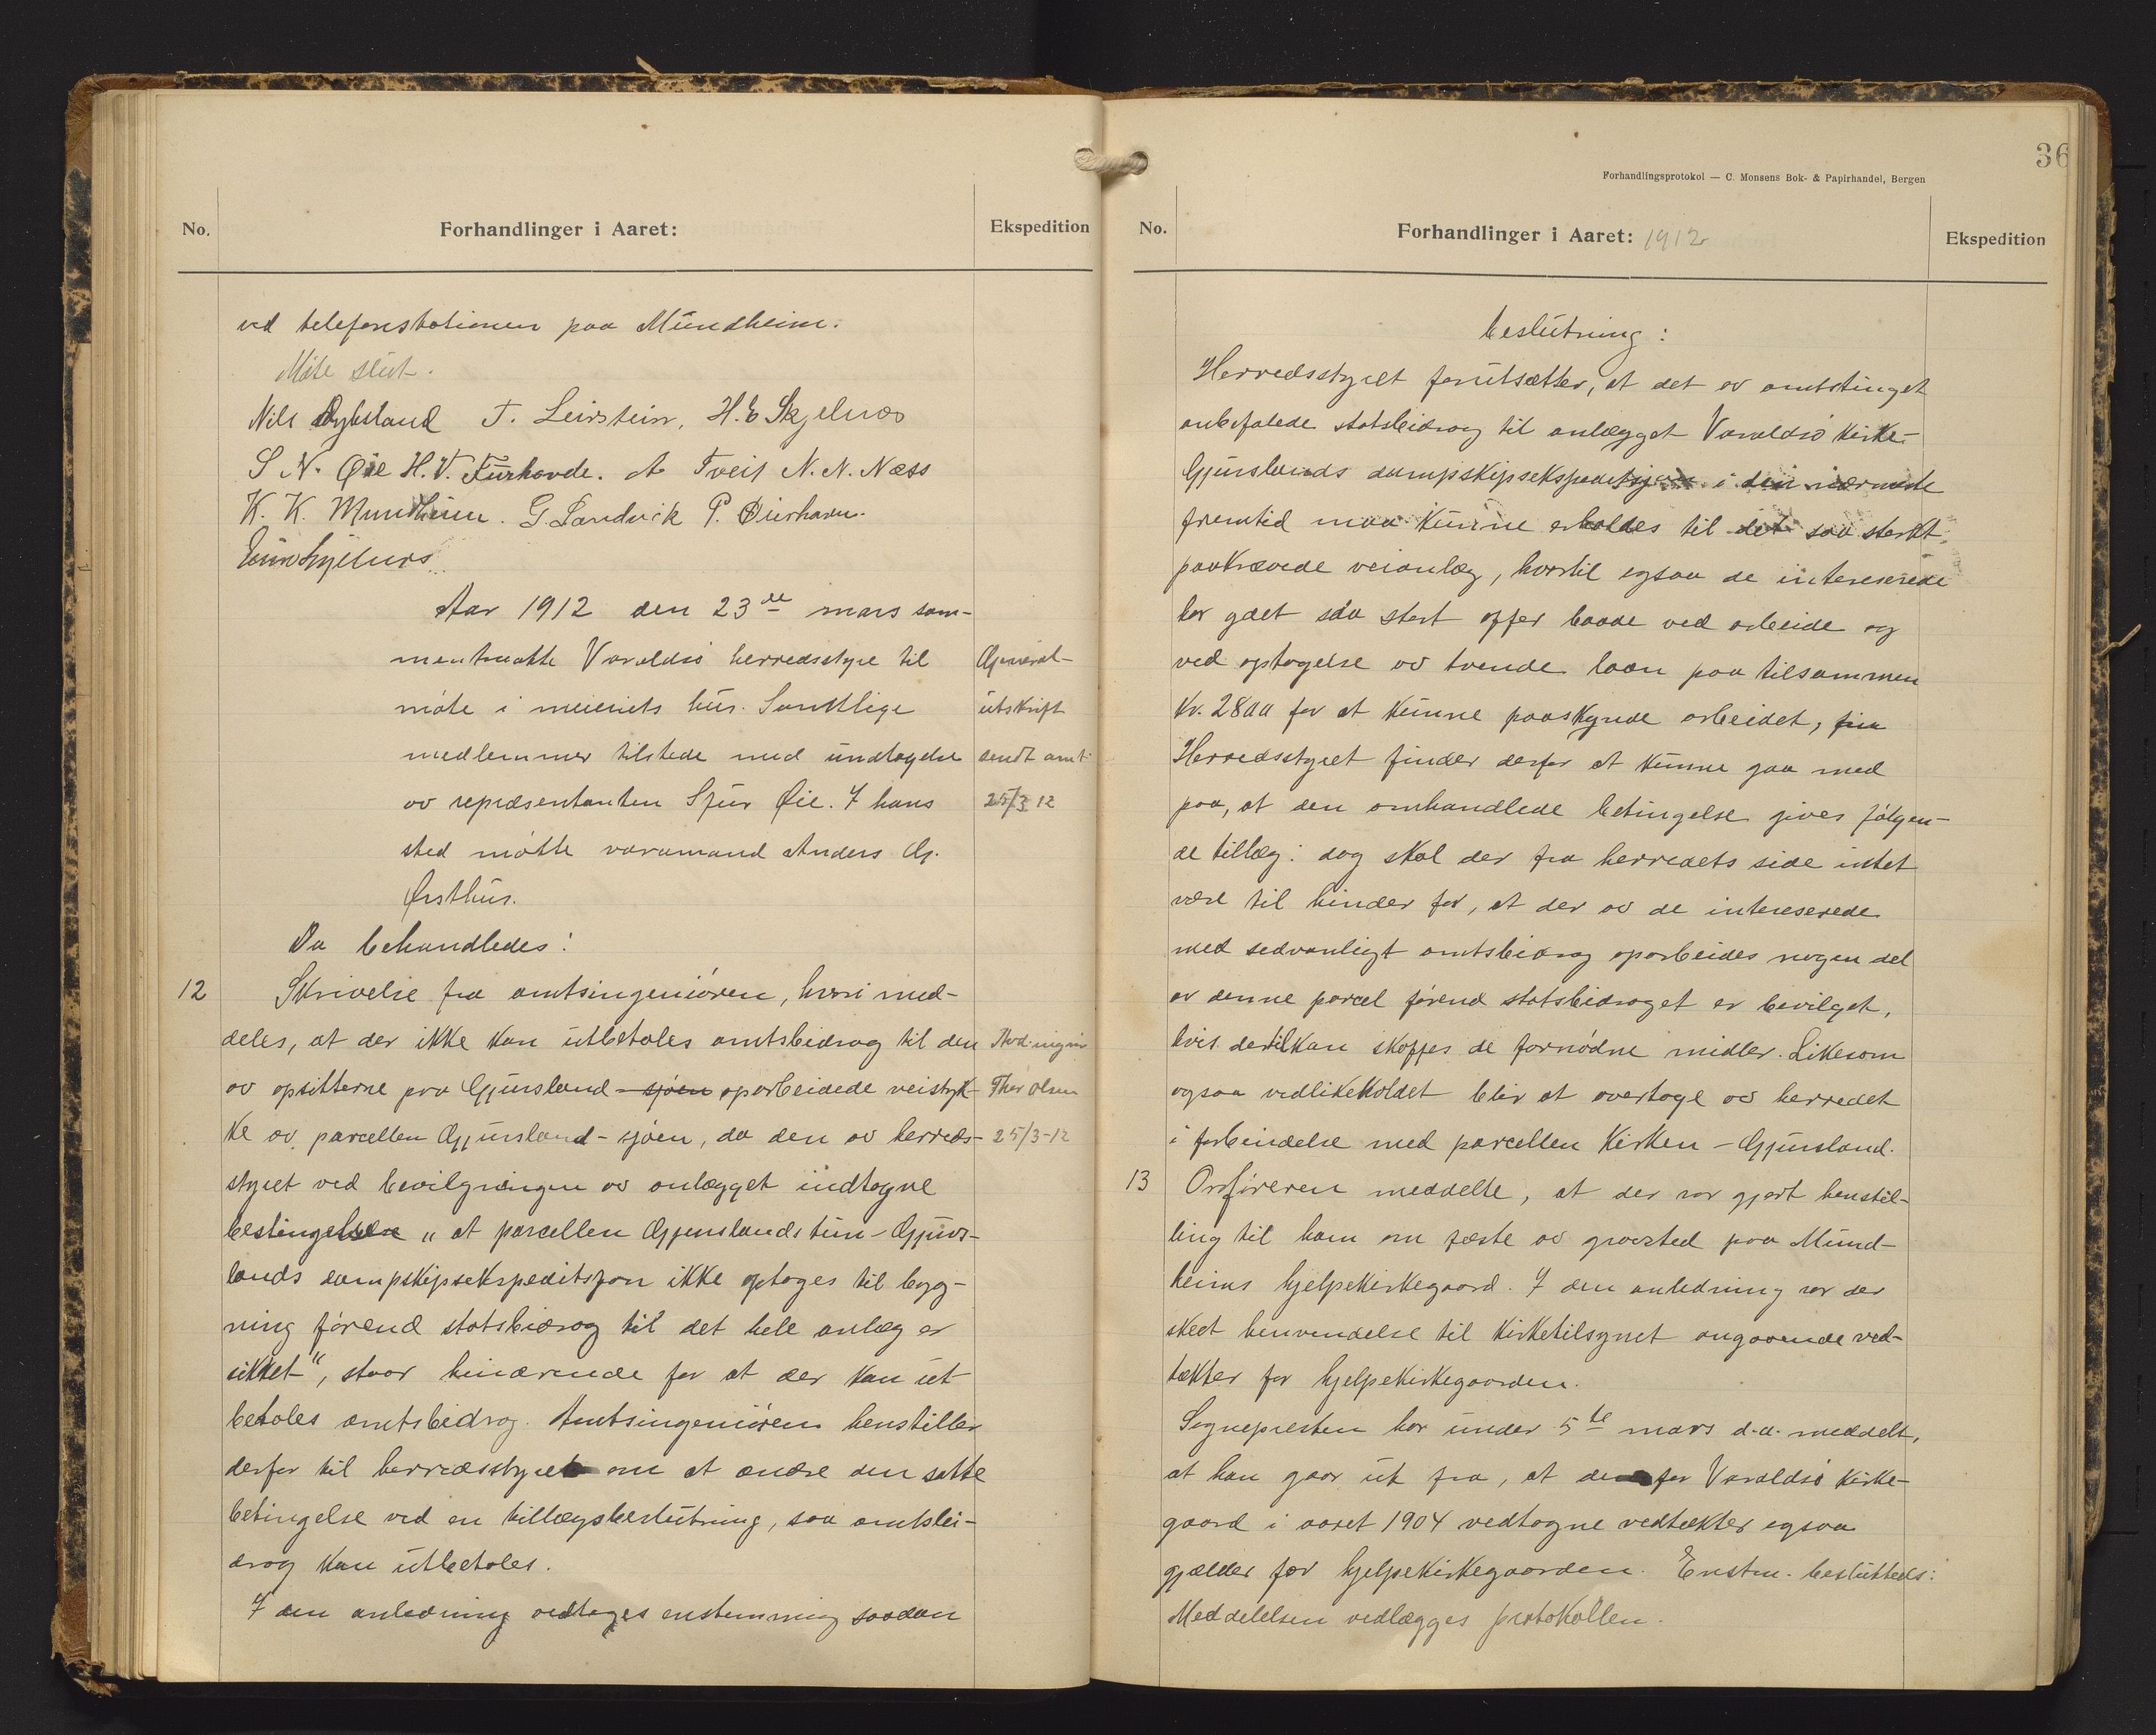 No.
Forhandlinger i Aaret:
Ekspedition
ved telefonstationen paa Mundheim.
Møte slut.
Nils Dybsland T. Leirstein, H. E Skjelnæs
S N. Øie H. V. Furhovde. A Tveit N. N. Næss
K. K. Mundheim. G. Sandvik P.
Aar 1912 den 23de mars sam-
mentraatte Varaldsø herredsstyre til
møte i meieriets hus. Samtlige
medlemmer tilstede med undtagelse
av repræsentanten Sjur Øie. I hans
sted møtte varamand Anders G.
Ørsthus.
General-
utskrift
sendt amt.
25/3 12
Da behandledes:
12
Skrivelse fra amtsingeniøren, hvori med-
deles, at der ikke kan utbetales amtsbidrag til den
av opsitterne paa Gjuvsland - sjøen oparbeidede veistyk-
ke av parcellen Gjuvsland - sjøen, da den av herreds-
styret ved bevilgningen av anlægget indtagne
bestingelse „at parcellen Gjuvslands tun - Gjuvs-
lands dampskipsekspeditsjon ikke optages til byg-
ning førend statsbidrag til det hele anlæg er
sikket", staar hindrende for at der kan ut
betales amtsbidrag. Amtsingeniøren henstiller
derfor til herredsstyret om at ændre den satte
betingelse ved en tillægsbeslutning, saa amtsbi-
drag kan utbetales.
I den anledning vedtages enstemmig saadan
Thor Olsen
25/3-12
36
Forhandlingsprotokol — C. Monsens Bok- & Papirhandel, Bergen
No.
Forhandlinger i Aaret: 1912
Ekspedition
beslutning:
Herredsstyret forutsætter, at det av amtstinget
anbefalede statsbidrag til anlægget Varaldsø kirke-
Gjuvslands dampskipsekspeditsjon i den nærmeste
fremtid maa kunne erholdes til det saa sterkt
paakrævede veianlæg, hvortil ogsaa de intereserede
har gaet saa stort offer baade ved arbeide og
ved optagelse av tvende laan paa tilsammen
Kr. 2800 for at kunne paaskynde arbeidet,
Herredsstyret finder derfor at kunne gaa med
paa, at den omhandlede betingelse gives følgen-
de tillæg: dog skal der fra herredets side intet
være til hinder for, at der av de intereserede
med sedvanligt amtsbidrag oparbeides nogen del
av denne parcel førend statsbidraget er bevilget,
hvis dertil kan skaffes de fornødne midler. Likesom
ogsaa vedlikeholdet blir at overtage av herredet
i forbindelse med parcellen Kirken - Gjuvsland.
13
Ordføreren meddelte, at der var gjort henstil-
ling til ham om fæste av gravsted paa Mund-
heims hjelpekirkegaard. I den anledning var der
skeet henvendelse til kirketilsynet angaaende ved-
tækter for hjelpekirkegaarden.
Sognepresten har under 5te mars d.a. meddelt,
at han gaar ut fra, at de for Varaldsø kirke-
gaard i aaret 1904 vedtagne vedtækter ogsaa
gjælder for hjelpekirkegaarden. Enstm. besluttedes:
Meddelelsen vedlægges protokollen.